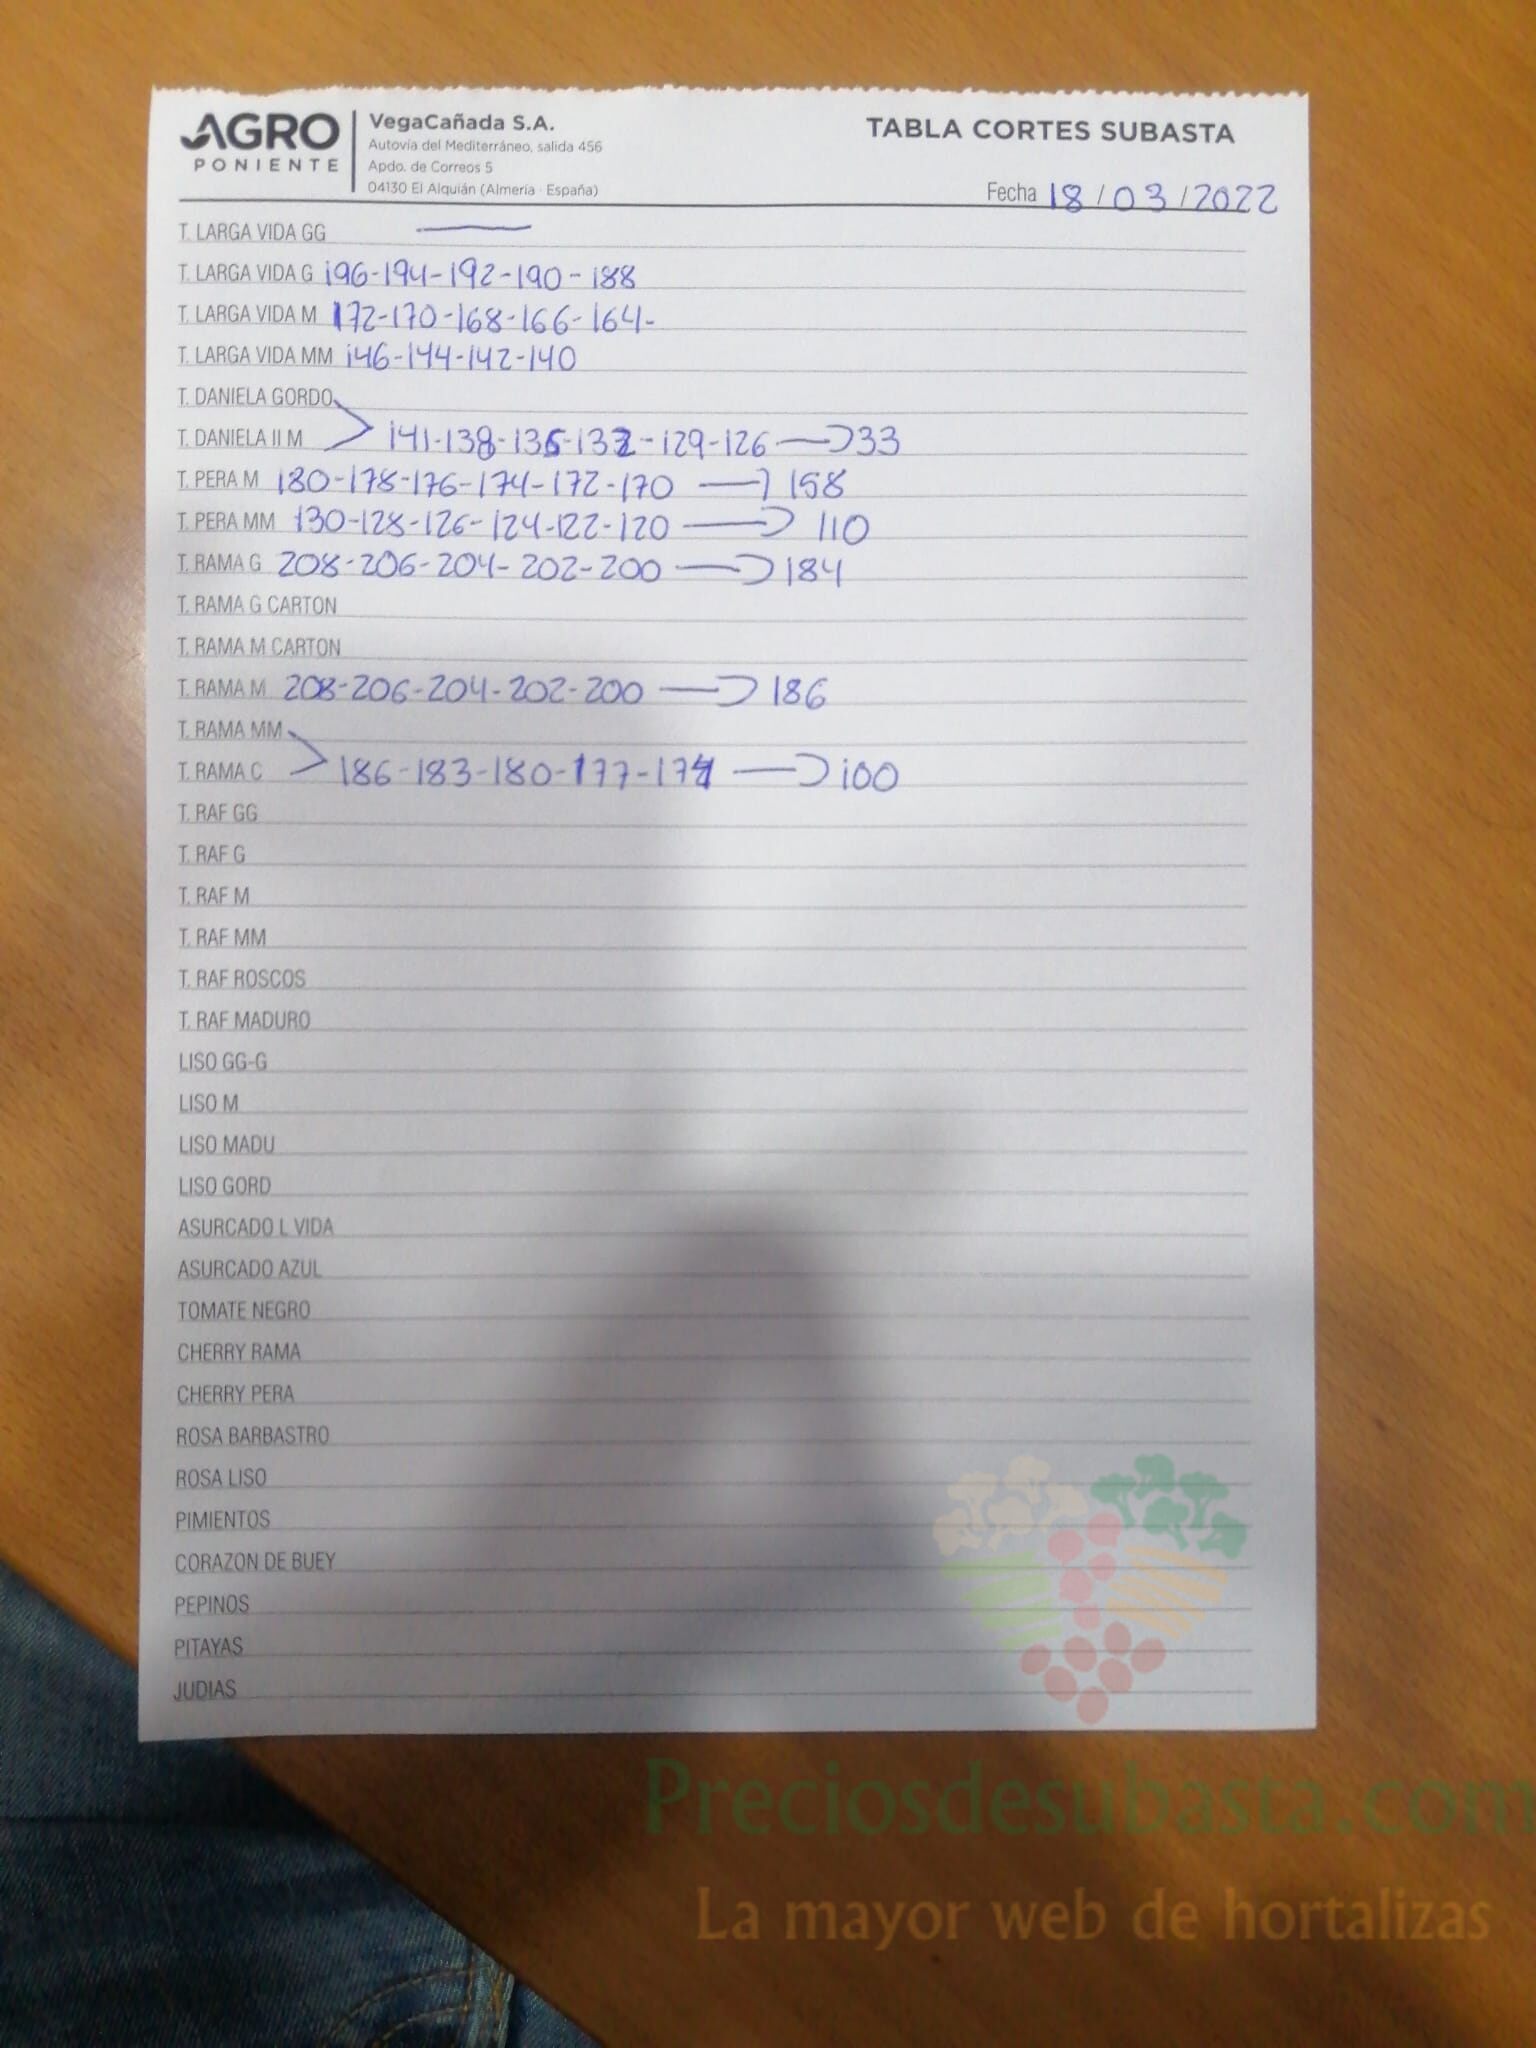 AGRO
PONIENTE
VegaCañada S.A.
Autovía del Mediterráneo, salida 456
Apdo. de Correos 5
04130 El Alquián (Almería · España)
TABLA CORTES SUBASTA
Fecha 18/03/2022
T. LARGA VIDA GG —
T. LARGA VIDA G 196-194-192-190-188
T. LARGA VIDA M 172-170-168-166-164-
T. LARGA VIDA MM 146-144-142-140
T. DANIELA GORDO
T. DANIELA II M 141-138-135-132-129-126 → 33
T. PERA M 180-178-176-174-172-170 → 158
T. PERA MM 130-128-126-124-122-120 → 110
T. RAMA G 208-206-204-202-200 → 184
T. RAMA G CARTON
T. RAMA M CARTON
T. RAMA M 208-206-204-202-200 → 186
T. RAMA MM
T. RAMA C 186-183-180-177-174 → 100
T. RAF GG
T. RAF G
T. RAF M
T. RAF MM
T. RAF ROSCOS
T. RAF MADURO
LISO GG-G
LISO M
LISO MADU
LISO GORD
ASURCADO L VIDA
ASURCADO AZUL
TOMATE NEGRO
CHERRY RAMA
CHERRY PERA
ROSA BARBASTRO
ROSA LISO
PIMIENTOS
CORAZON DE BUEY
PEPINOS
PITAYAS
JUDIAS
Preciosdesubasta.com
La mayor web de hortalizas